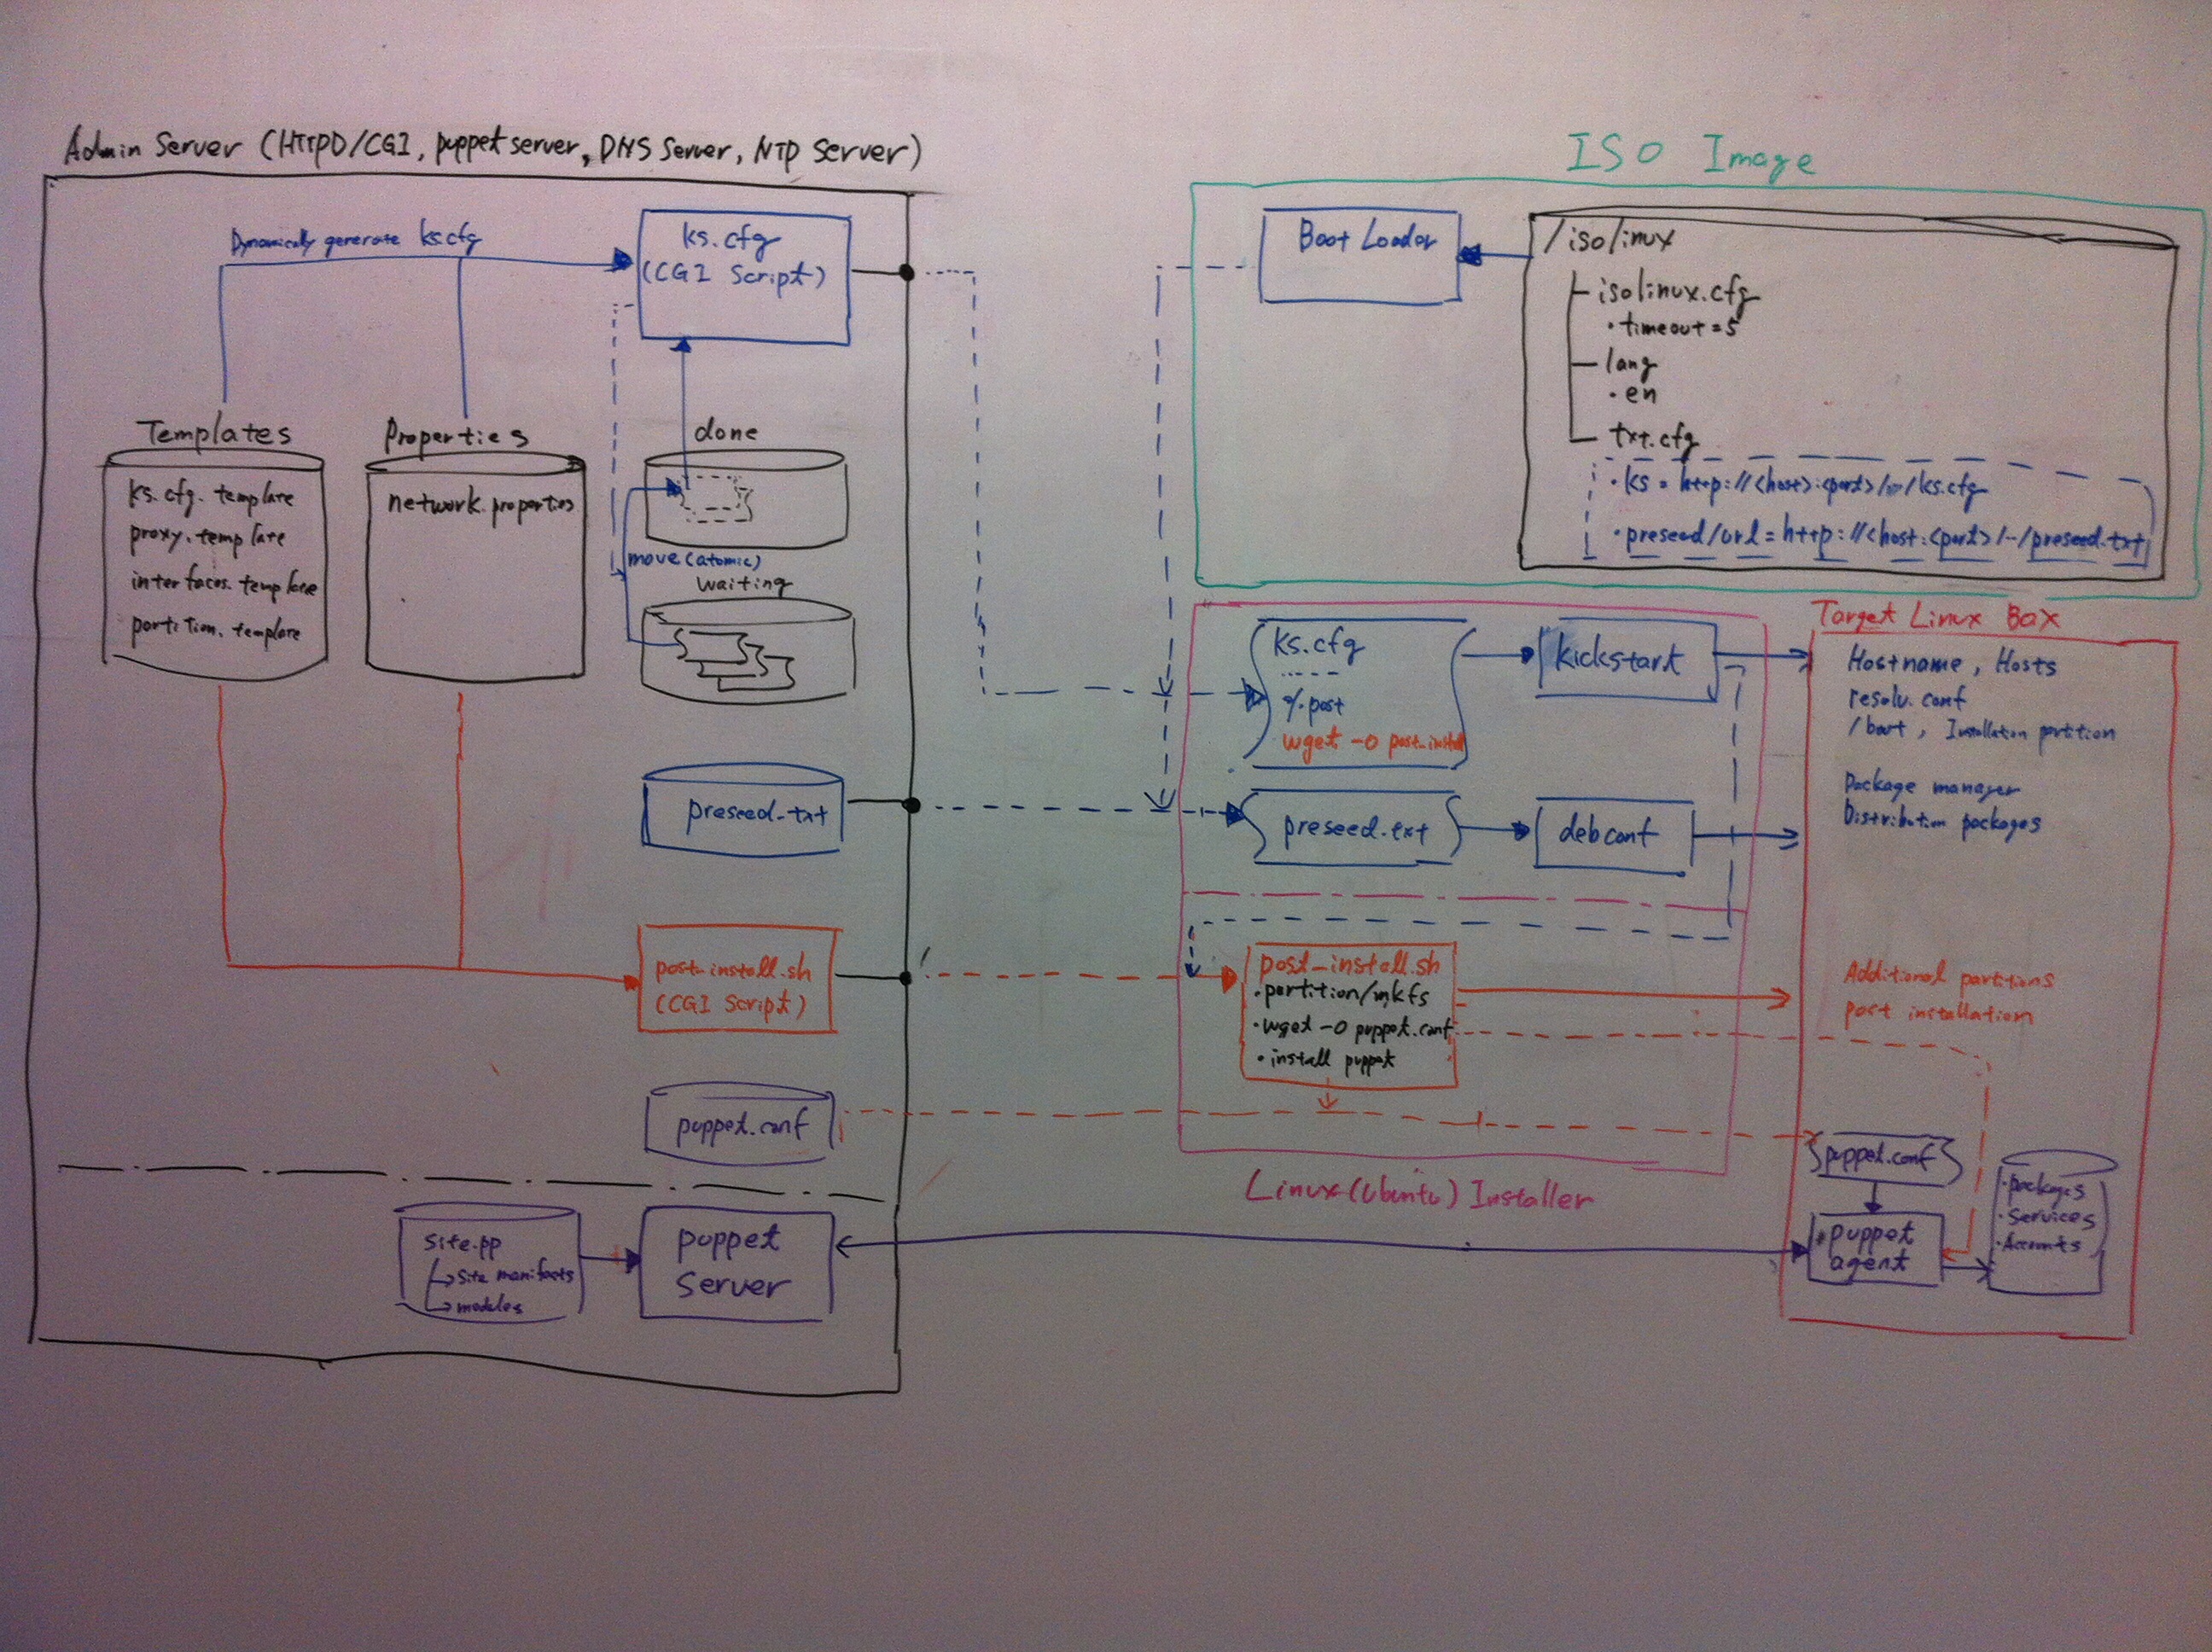 Admin Server (HTTPD/CGI, puppet server, DNS Server, NTP Server)
Dynamically generate ks.cfg
ks.cfg
(CGI Script)
Templates
ks.cfg.template
proxy.template
interfaces.template
partition.template
Properties
network.properties
done
move (atomic)
waiting
preseed.txt
post-install.sh
(CGI Script)
puppet.conf
site.pp
site manifests
modules
puppet
server
ISO Image
Boot Loader
/isolinux
isolinux.cfg
・timeout=5
lang
・en
txt.cfg
・ks = http://<host>:<port>/…/ks.cfg
・preseed/url = http://<host:<port>/--/preseed.txt
ks.cfg
-----
%post
wget -O post-install
kickstart
preseed.txt
debconf
post-install.sh
・partition/mkfs
・wget -O puppet.conf
・install puppet
Linux (Ubuntu) Installer
Target Linux Box
Hostname, Hosts
resolv.conf
/boot, Installation partition
Package manager
Distribution packages
Additional partitions
post installation
puppet.conf
puppet
agent
・packages
・Services
・Accounts